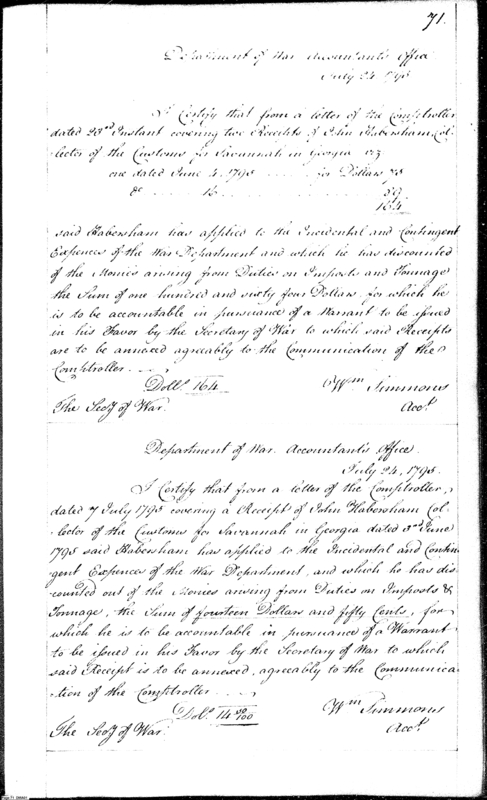 71.
Department of War Accountant's Office
July 24. 1795
I Certify that from a letter of the Comptroller
dated 23rd Instant covering two Receipts of John Habersham, Col-
lector of the Customs for Savannah in Georgia viz
one dated June 4. 1795 for Dollars
do 16
164
said Habersham has applied to the Incidental and Contingent
Expences of the War Department and which he has discounted
of the Monies arising from Duties on Imposts and Tonnage
the Sum of one hundred and sixty four Dollars. for which he
is to be accountable in pursuance of a Warrant to be issued
in his Favor by the Secretary of War to which said Receipts
are to be annexed agreeably to the Communication of the
Comptroller
Dolls. 164
Wm Simmons
The Secy of War.
Acct.
Department of War Accountant's Office.
July 24, 1795.
I Certify that from a letter of the Comptroller,
dated 7 July 1795 covering a Receipt of John Habersham Col-
-lector of the Customs for Savannah in Georgia dated June
1795 said Habersham has applied to the Incidental and Contin-
gent Expences of the War Department, and which he has dis-
counted out of the Monies arising from Duties on Imposts &
Tonnage, the Sum of fourteen Dollars and fifty Cents, for
which he is to be accountable in pursuance of a Warrant
to be issued in his Favor by the Secretary of War to which
said Receipt is to be annexed, agreeably to the Communica-
tion of the Comptroller
Dolls. 14 50/100
Wm Simmons
The Secy of War.
Acct.